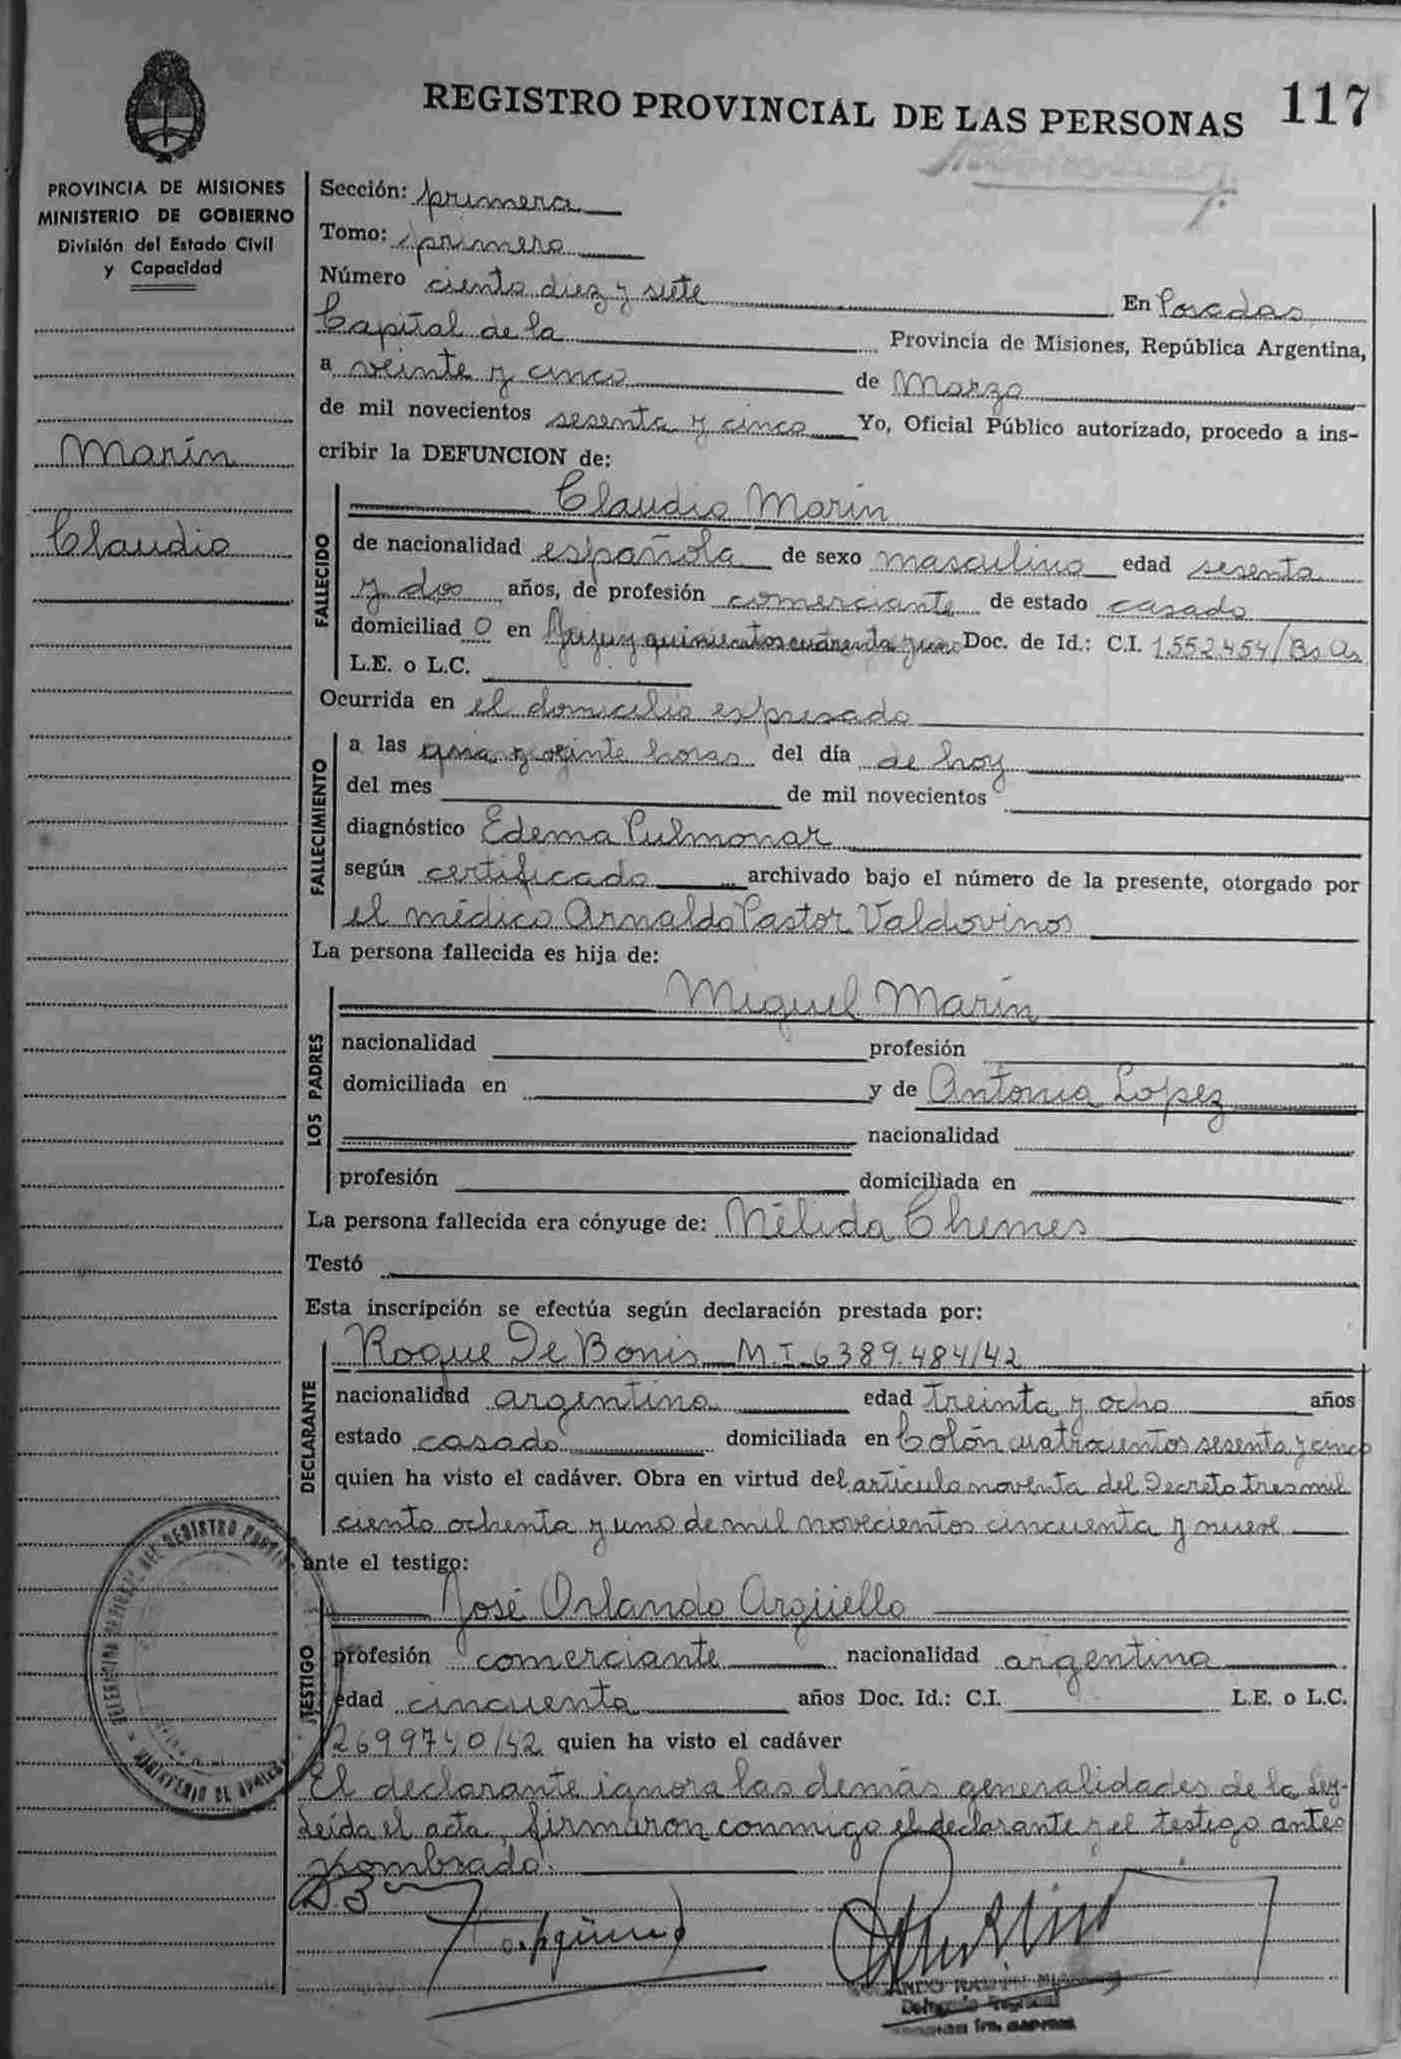 REGISTRO PROVINCIAL DE LAS PERSONAS 117
PROVINCIA DE MISIONES
MINISTERIO DE GOBIERNO
División del Estado Civil
y Capacidad
Marín
Claudio
Sección: primera
Tomo: primero
Número ciento diez y siete En Posadas
Capital de la Provincia de Misiones, República Argentina,
a veinte y cinco de Marzo
de mil novecientos sesenta y cinco Yo, Oficial Público autorizado, procedo a ins-
cribir la DEFUNCION de:
FALLECIDO
Claudio Marín
de nacionalidad española de sexo masculino edad sesenta
y dos años, de profesión comerciante de estado casado
domiciliad o en Jujuy quinientos cuarenta y uno Doc. de Id.: C.I. 1.552.454/Bs As
L.E. o L.C.
Ocurrida en el domicilio expresado
FALLECIMIENTO
a las una y veinte horas del día de hoy
del mes de mil novecientos
diagnóstico Edema Pulmonar
según certificado archivado bajo el número de la presente, otorgado por
el médico Arnaldo Pastor Valdovinos
La persona fallecida es hija de:
LOS PADRES
Miguel Marín
nacionalidad profesión
domiciliada en y de Antonia Lopez
nacionalidad
profesión domiciliada en
La persona fallecida era cónyuge de: Nélida Chemes
Testó
Esta inscripción se efectúa según declaración prestada por:
DECLARANTE
Roque De Bonis M.I. 6389.484/42
nacionalidad argentina edad treinta y ocho años
estado casado domiciliada en Colón cuatrocientos sesenta y cinco
quien ha visto el cadáver. Obra en virtud del artículo noventa del Decreto tres mil
ciento ochenta y uno de mil novecientos cincuenta y nueve
ante el testigo:
TESTIGO
José Orlando Argüello
profesión comerciante nacionalidad argentina
edad cincuenta años Doc. Id.: C.I. L.E. o L.C.
2699740/42 quien ha visto el cadáver
El declarante ignora las demás generalidades de la Ley-
Leída el acta, firmaron conmigo el declarante y el testigo antes
nombrado.